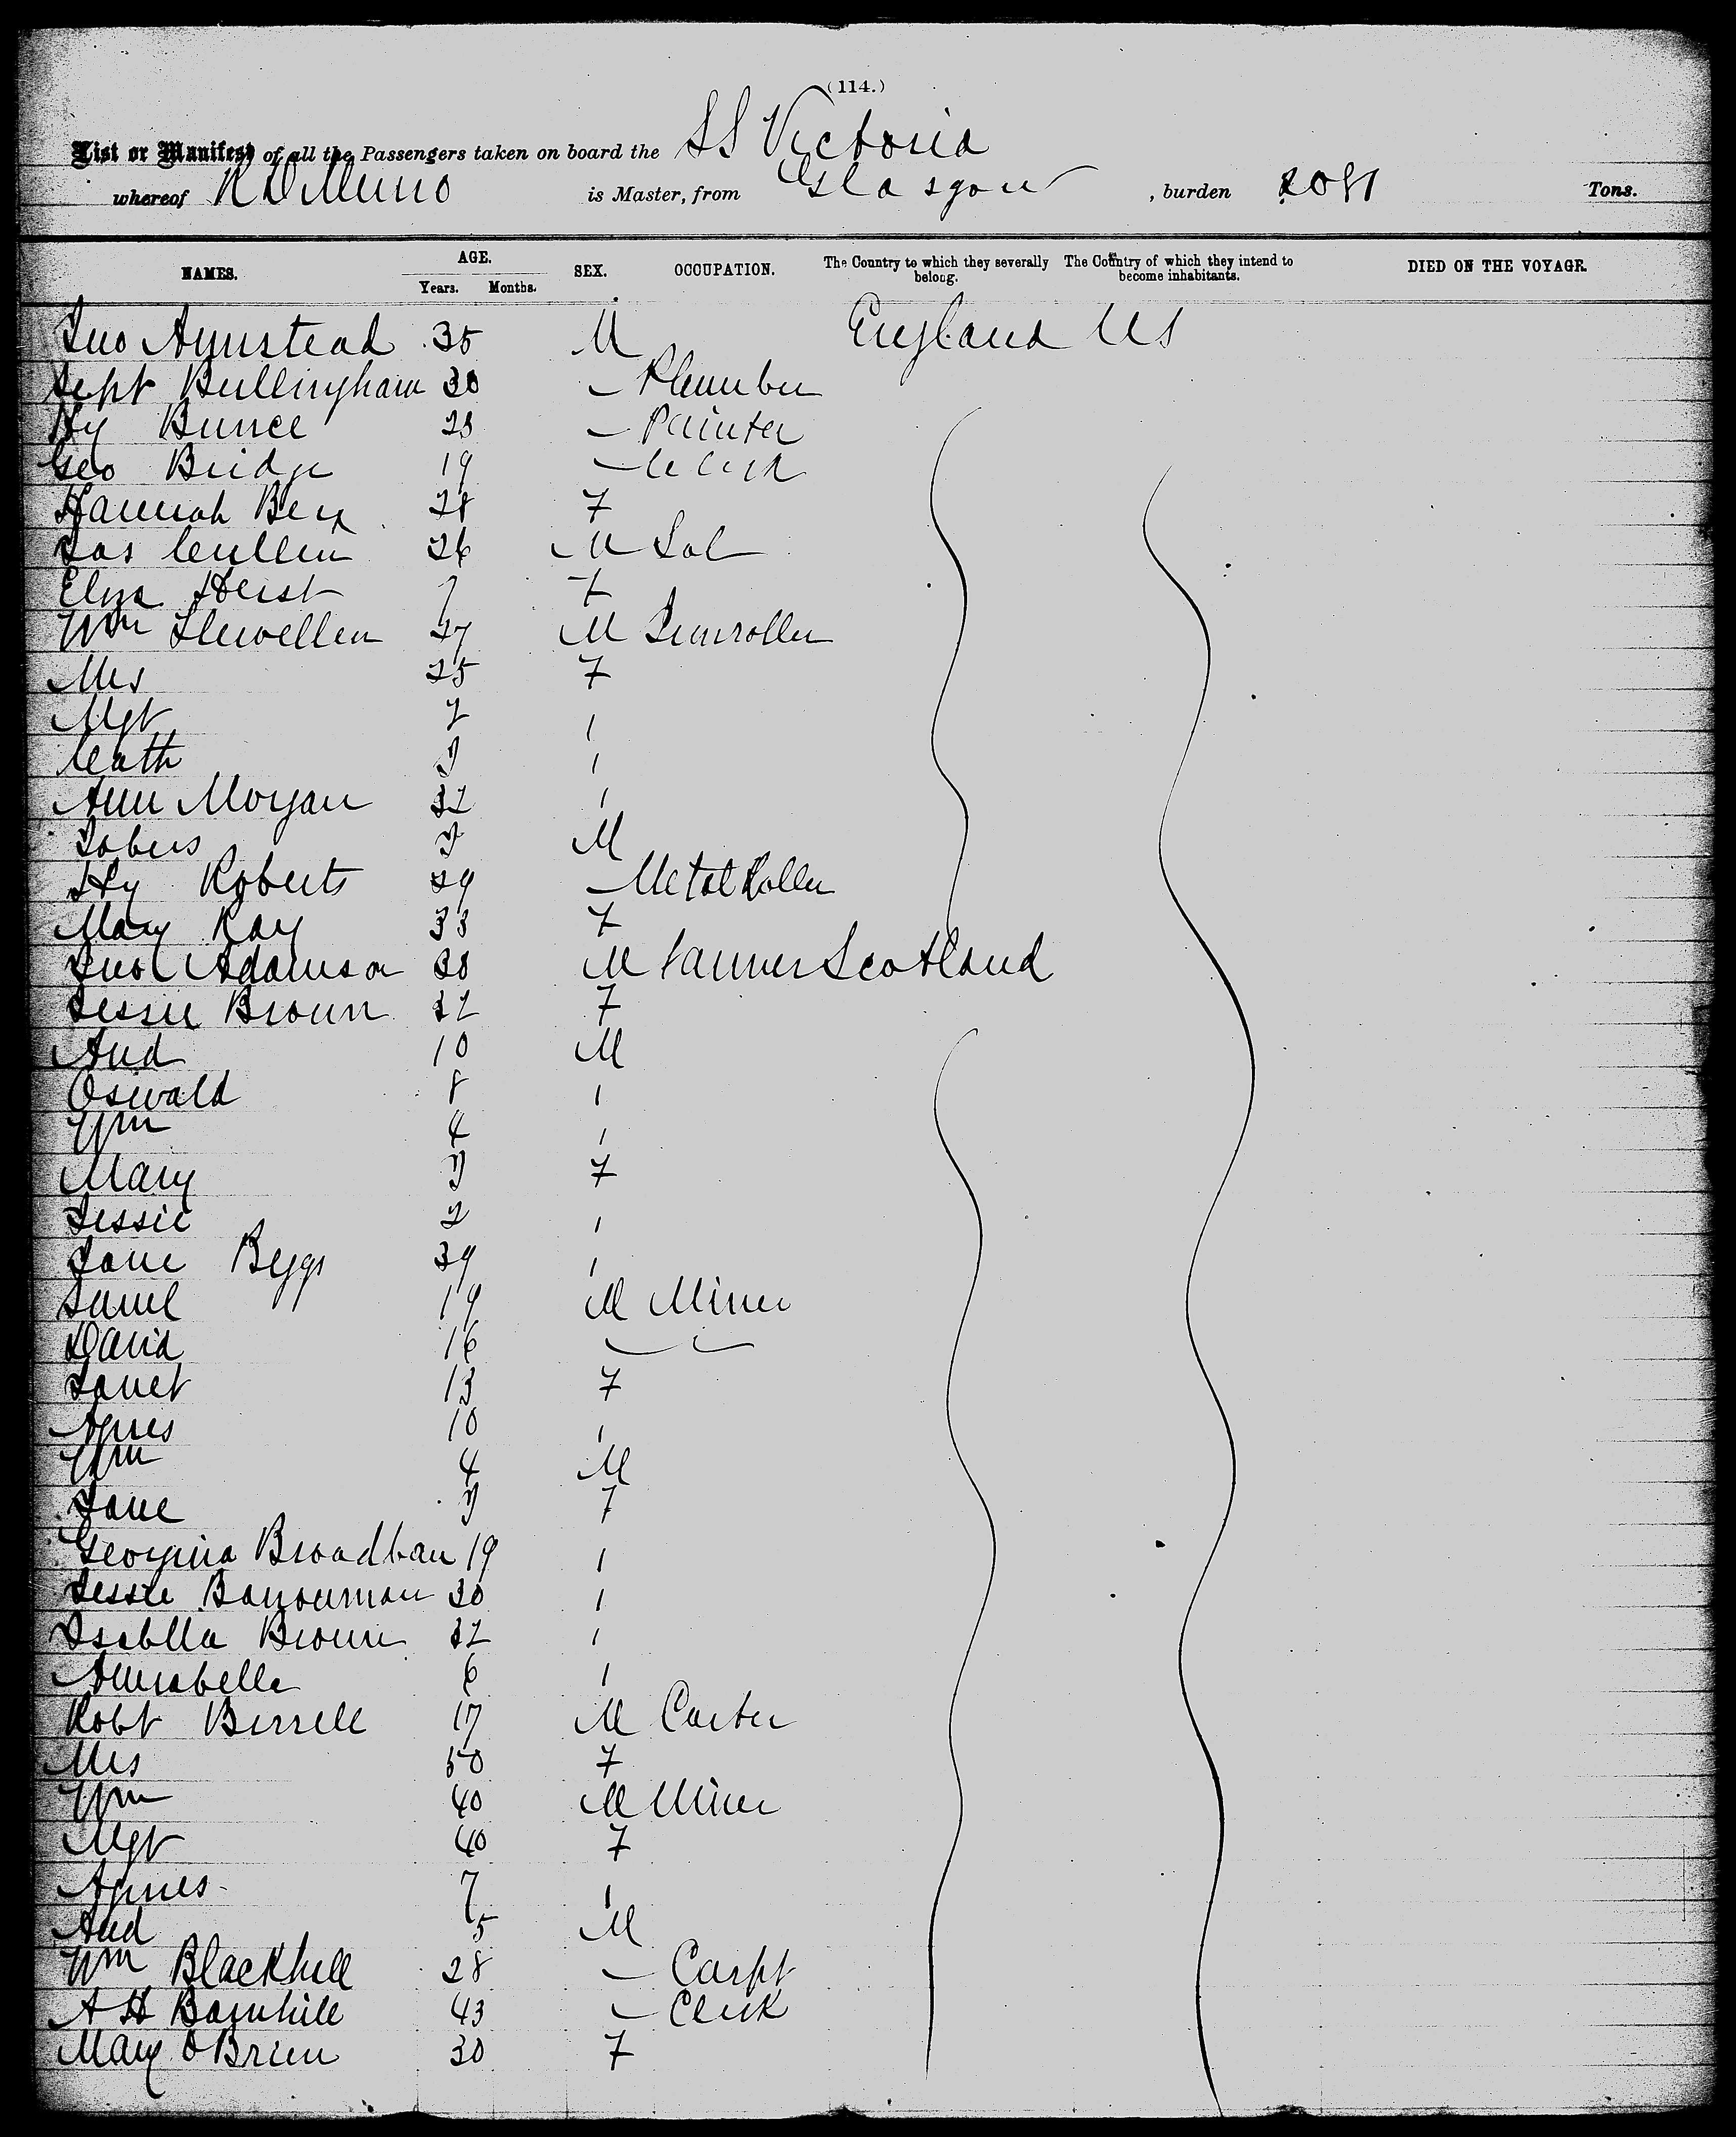 (114.)
List or Manifest of all the Passengers taken on board the SS Victoria
whereof R D Munro is Master, from Glasgow, burden 2081 Tons.
NAMES. AGE. Years. Months. SEX. OCCUPATION. The Country to which they severally belong. The Country of which they intend to become inhabitants. DIED ON THE VOYAGE.
Jno Armstead 35 M England US
Sept Bullingham 30 — Plumber
Hy Bunce 23 — Painter
Geo Bridge 19 — Clerk
Hannah 28 F
Jas Cullen 26 M Lab
Eliza Hurst 7 F
Wm Llewellen 27 M Ironroller
Mrs 25 F
Mgt 2 "
Cath "
Ann Morgan 32 "
M
Hy Roberts 29 — Metal Roller
Mary Ray 33 F
Jno Adamson 38 M Farmer Scotland
Jessie Brown 32 F
And 10 M
Oswald 8 "
Wm 4 "
Mary 3 F
Jessie 2 "
Jane Beggs 39 "
Saml 19 M Miner
David 16 — —
Janet 13 F
Agnes 10 "
Wm 4 M
Jane F
Georgina Broadban 19 "
Jessie Barrowman 30 "
Isablla Brown 32 "
Annabella 6 "
Robt Birrell 17 M Carter
Mrs 50 F
Wm 40 M Miner
Mgt 40 F
Agnes 7 "
And 5 M
Wm Blackhall 28 — Carpt
A H Barnhill 43 — Clerk
Mary O Brien 30 F